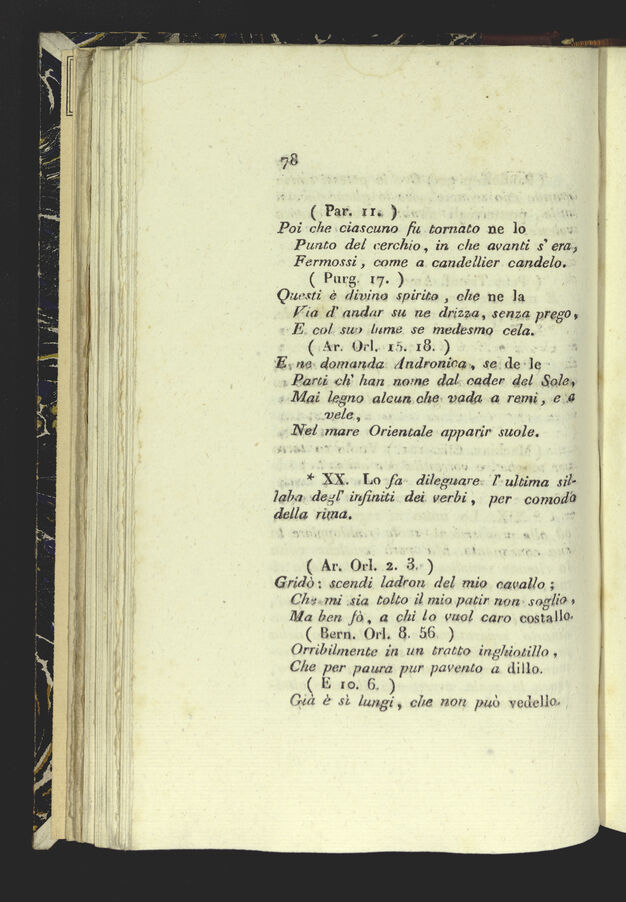 78
( Par. 11. )
Poi che ciascuno fu tornato ne lo
Punto del cerchio, in che avanti s' era,
Fermossi, come a candellier candelo.
( Purg. 17. )
Questi è divino spirito, che ne la
Via d' andar su ne drizza, senza prego,
E col suo lume se medesmo cela.
( Ar. Orl. 15. 18. )
E ne domanda Andronica, se de le
Parti ch' han nome dal cader del Sole,
Mai legno alcun che vada a remi, e a
vele,
Nel mare Orientale apparir suole.
* XX. Lo fa dileguare l' ultima sil-
laba degl' infiniti dei verbi, per comodo
della rima.
( Ar. Orl. 2. 3. )
Gridò: scendi ladron del mio cavallo;
Che mi sia tolto il mio patir non soglio,
Ma ben fò, a chi lo vuol caro costallo.
( Bern. Orl. 8. 56 )
Orribilmente in un tratto inghiotillo,
Che per paura pur pavento a dillo.
( E 10. 6. )
Già è sì lungi, che non può vedello.